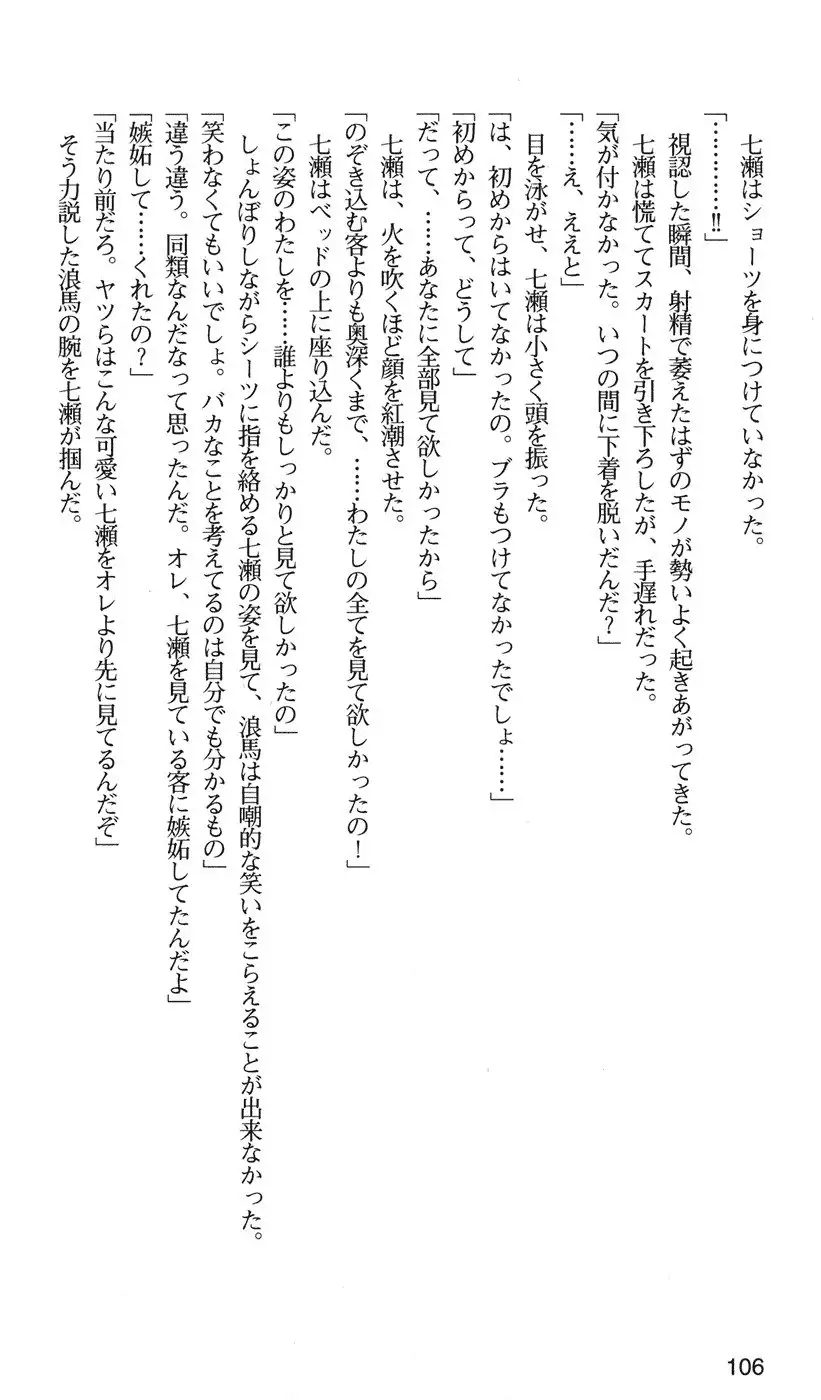 七瀬はショーツを身につけていなかった。
「…………!!」
視認した瞬間、射精で萎えたはずのモノが勢いよく起きあがってきた。
七瀬は慌ててスカートを引き下ろしたが、手遅れだった。
「気が付かなかった。いつの間に下着を脱いだんだ？」
「……え、ええと」
目を泳がせ、七瀬は小さく頭を振った。
「は、初めからはいてなかったの。ブラもつけてなかったでしょ……」
「初めからって、どうして」
「だって、……あなたに全部見て欲しかったから」
七瀬は、火を吹くほど顔を紅潮させた。
「のぞき込む客よりも奥深くまで、……わたしの全てを見て欲しかったの！」
七瀬はベッドの上に座り込んだ。
「この姿のわたしを……誰よりもしっかりと見て欲しかったの」
しょんぼりしながらシーツに指を絡める七瀬の姿を見て、浪馬は自嘲的な笑いをこらえることが出来なかった。
「笑わなくてもいいでしょ。バカなことを考えてるのは自分でも分かるもの」
「違う違う。同類なんだなって思ったんだ。オレ、七瀬を見ている客に嫉妬してたんだよ」
「嫉妬して……くれたの？」
「当たり前だろ。ヤツらはこんな可愛い七瀬をオレより先に見てるんだぞ」
そう力説した浪馬の腕を七瀬が掴んだ。
106